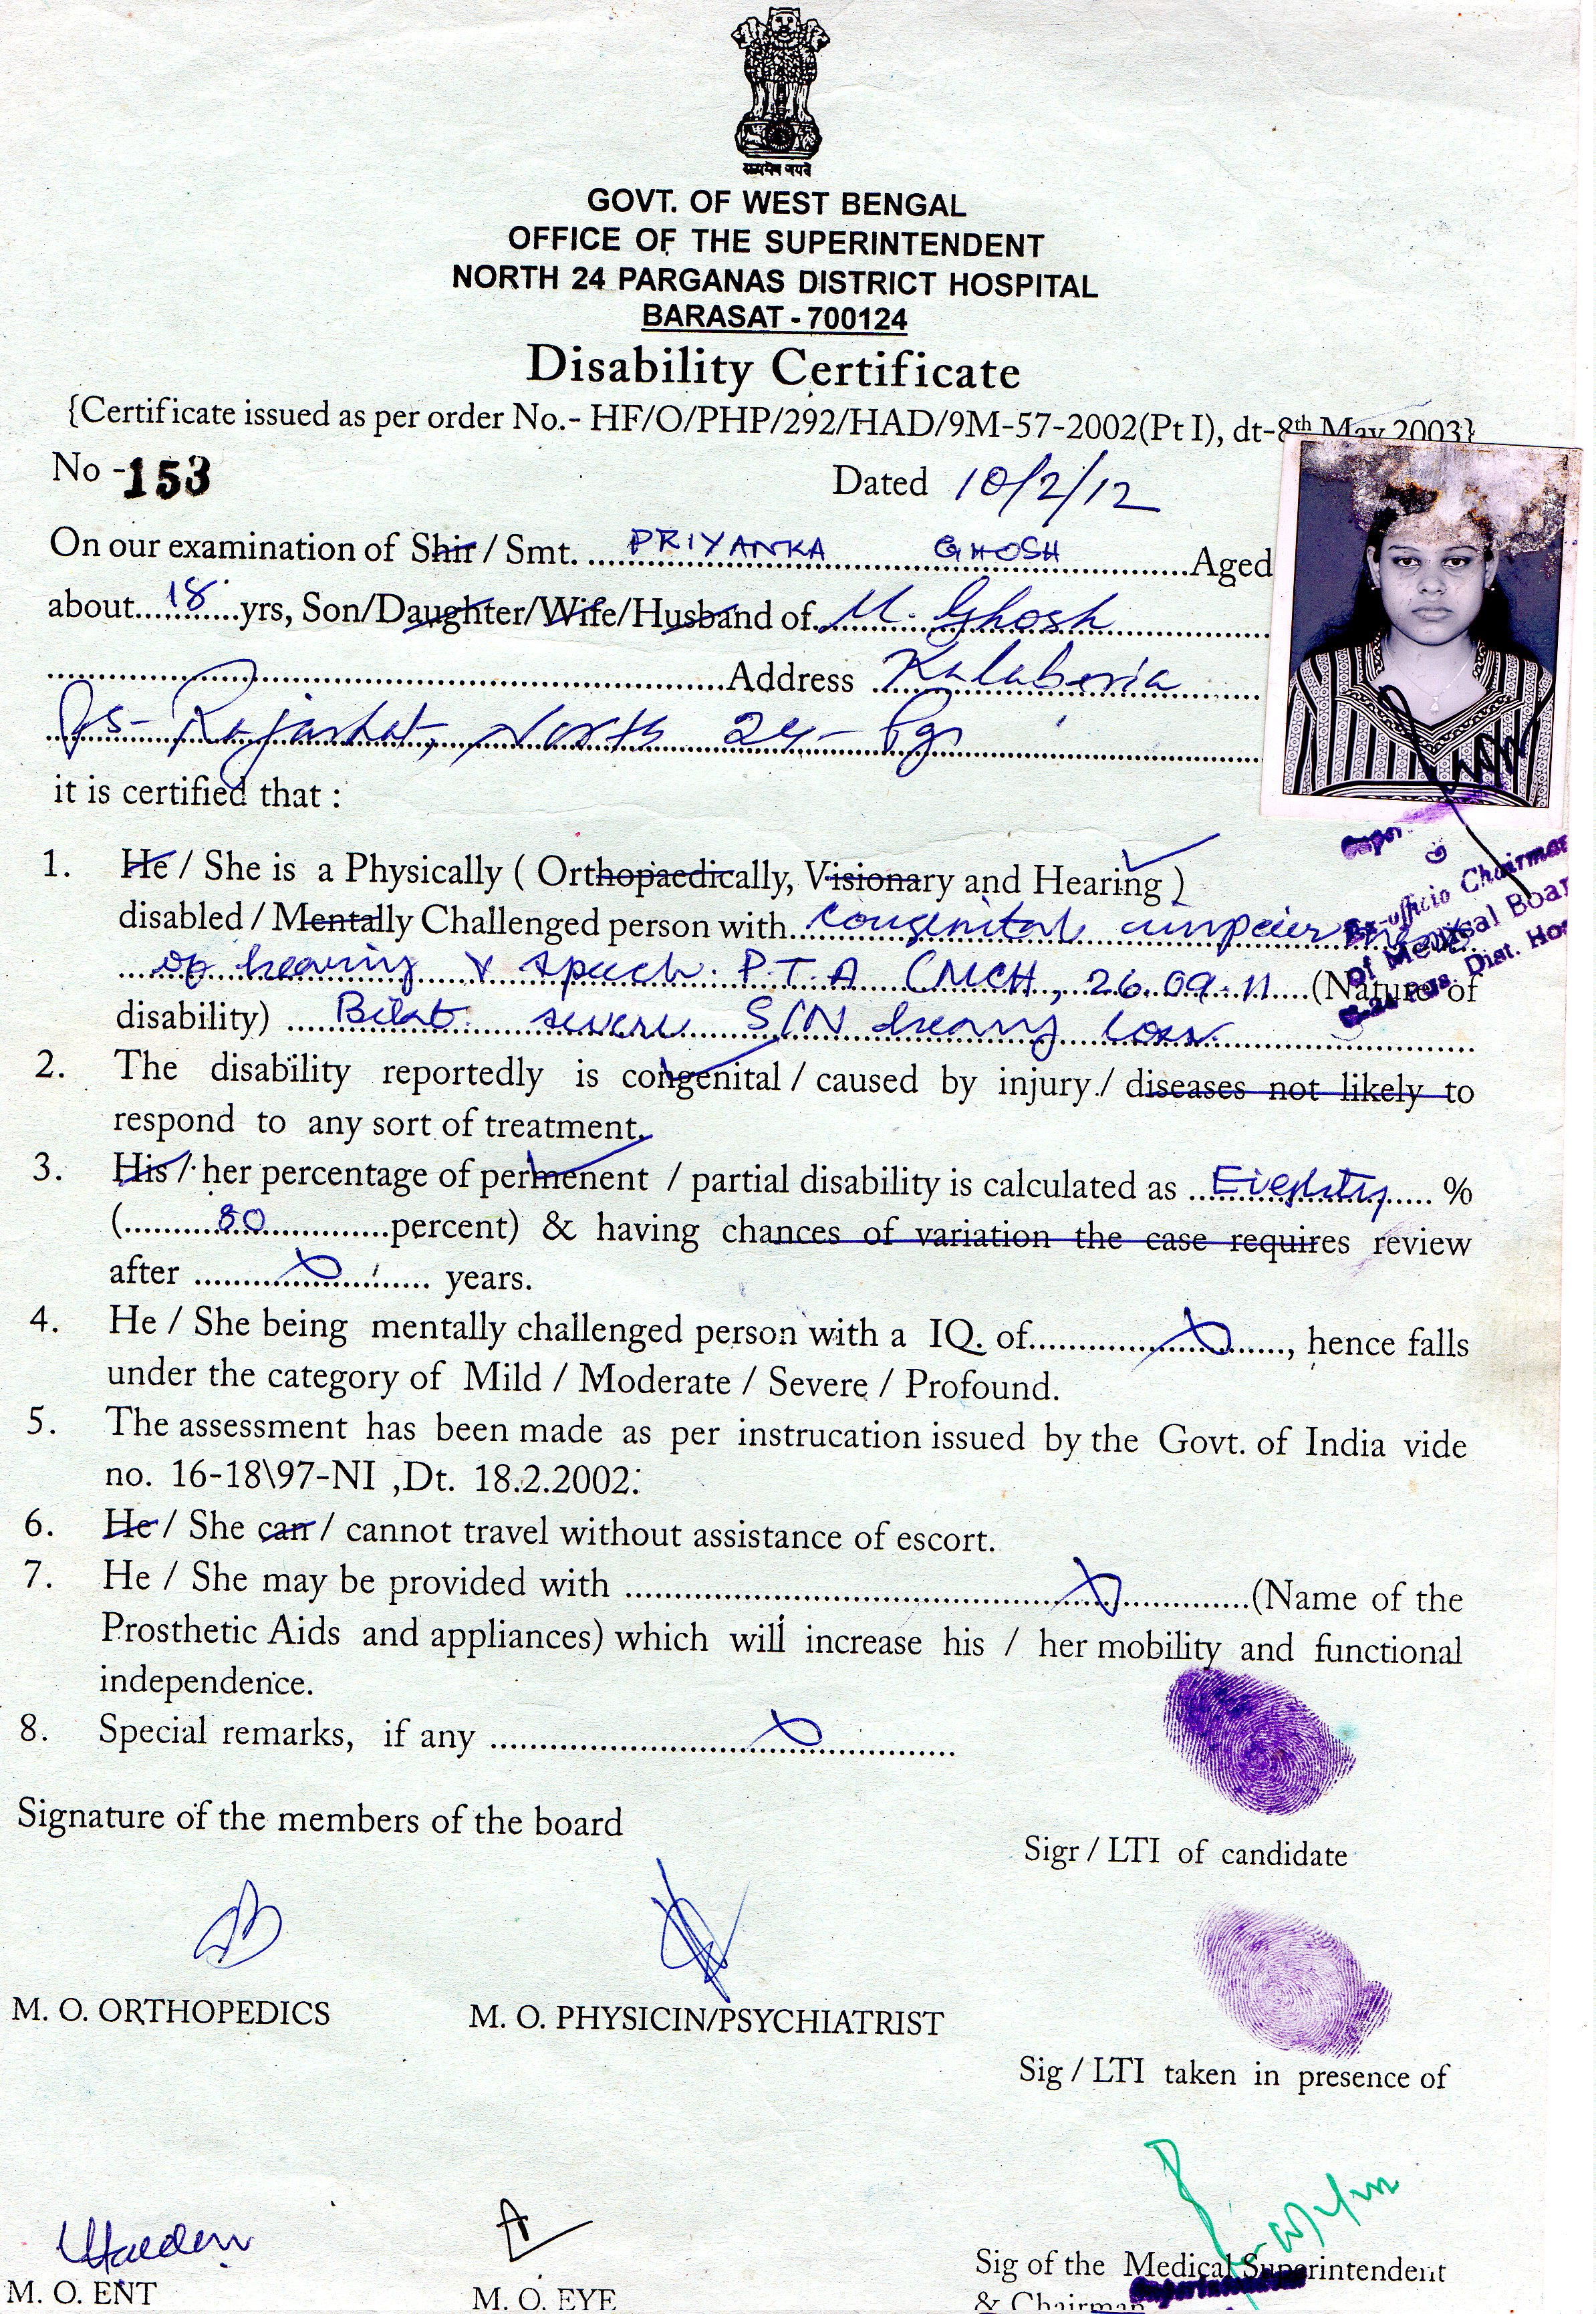 सत्यमेव जयते
GOVT. OF WEST BENGAL
OFFICE OF THE SUPERINTENDENT
NORTH 24 PARGANAS DISTRICT HOSPITAL
BARASAT - 700124
Disability Certificate
{Certificate issued as per order No.- HF/O/PHP/292/HAD/9M-57-2002(Pt I), dt-8th May 2003}
No - 153 Dated 10/2/12
On our examination of Shir / Smt. PRIYANKA GHOSH Aged
about 18 yrs, Son/Daughter/Wife/Husband of M. Ghosh
Address Kalaberia
Ps- Rajarhat, North 24- Pgs
it is certified that :
1. He / She is a Physically ( Orthopaedically, Visionary and Hearing )
disabled / Mentally Challenged person with congenital impairment
of hearing & speech. P.T.A CNCH, 26.09.11 (Nature of
disability) Bilat. severe S/N hearing loss.
2. The disability reportedly is congenital / caused by injury / diseases not likely to
respond to any sort of treatment.
3. His / her percentage of permenent / partial disability is calculated as Eieghty %
( 80 percent) & having chances of variation the case requires review
after years.
4. He / She being mentally challenged person with a IQ. of , hence falls
under the category of Mild / Moderate / Severe / Profound.
5. The assessment has been made as per instrucation issued by the Govt. of India vide
no. 16-18\97-NI ,Dt. 18.2.2002.
6. He / She can / cannot travel without assistance of escort.
7. He / She may be provided with (Name of the
Prosthetic Aids and appliances) which will increase his / her mobility and functional
independence.
8. Special remarks, if any
Ex-officio Chairman
of Medical Board
Pgs. Dist. Hos
Signature of the members of the board
Sigr / LTI of candidate
M. O. ORTHOPEDICS M. O. PHYSICIN/PSYCHIATRIST
Sig / LTI taken in presence of
Sig of the Medical Superintendent
M. O. ENT M. O. EYE & Chairman